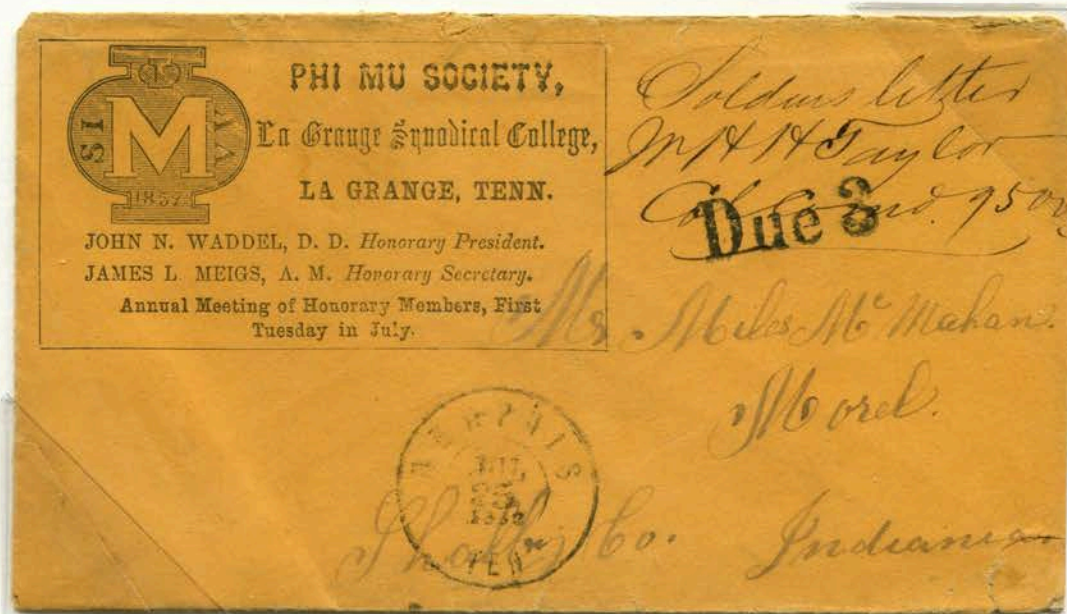 SI M
1857
PHI MU SOCIETY,
La Grange Synodical College,
LA GRANGE, TENN.
JOHN N. WADDEL, D. D. Honorary President.
JAMES L. MEIGS, A. M. Honorary Secretary.
Annual Meeting of Honorary Members, First
Tuesday in July.
Soldiers letter
Taylor
Due 3
Mr. Miles McMahan.
Morel.
Shelby Co. Indiana
MEMPHIS
25
1862
TEN